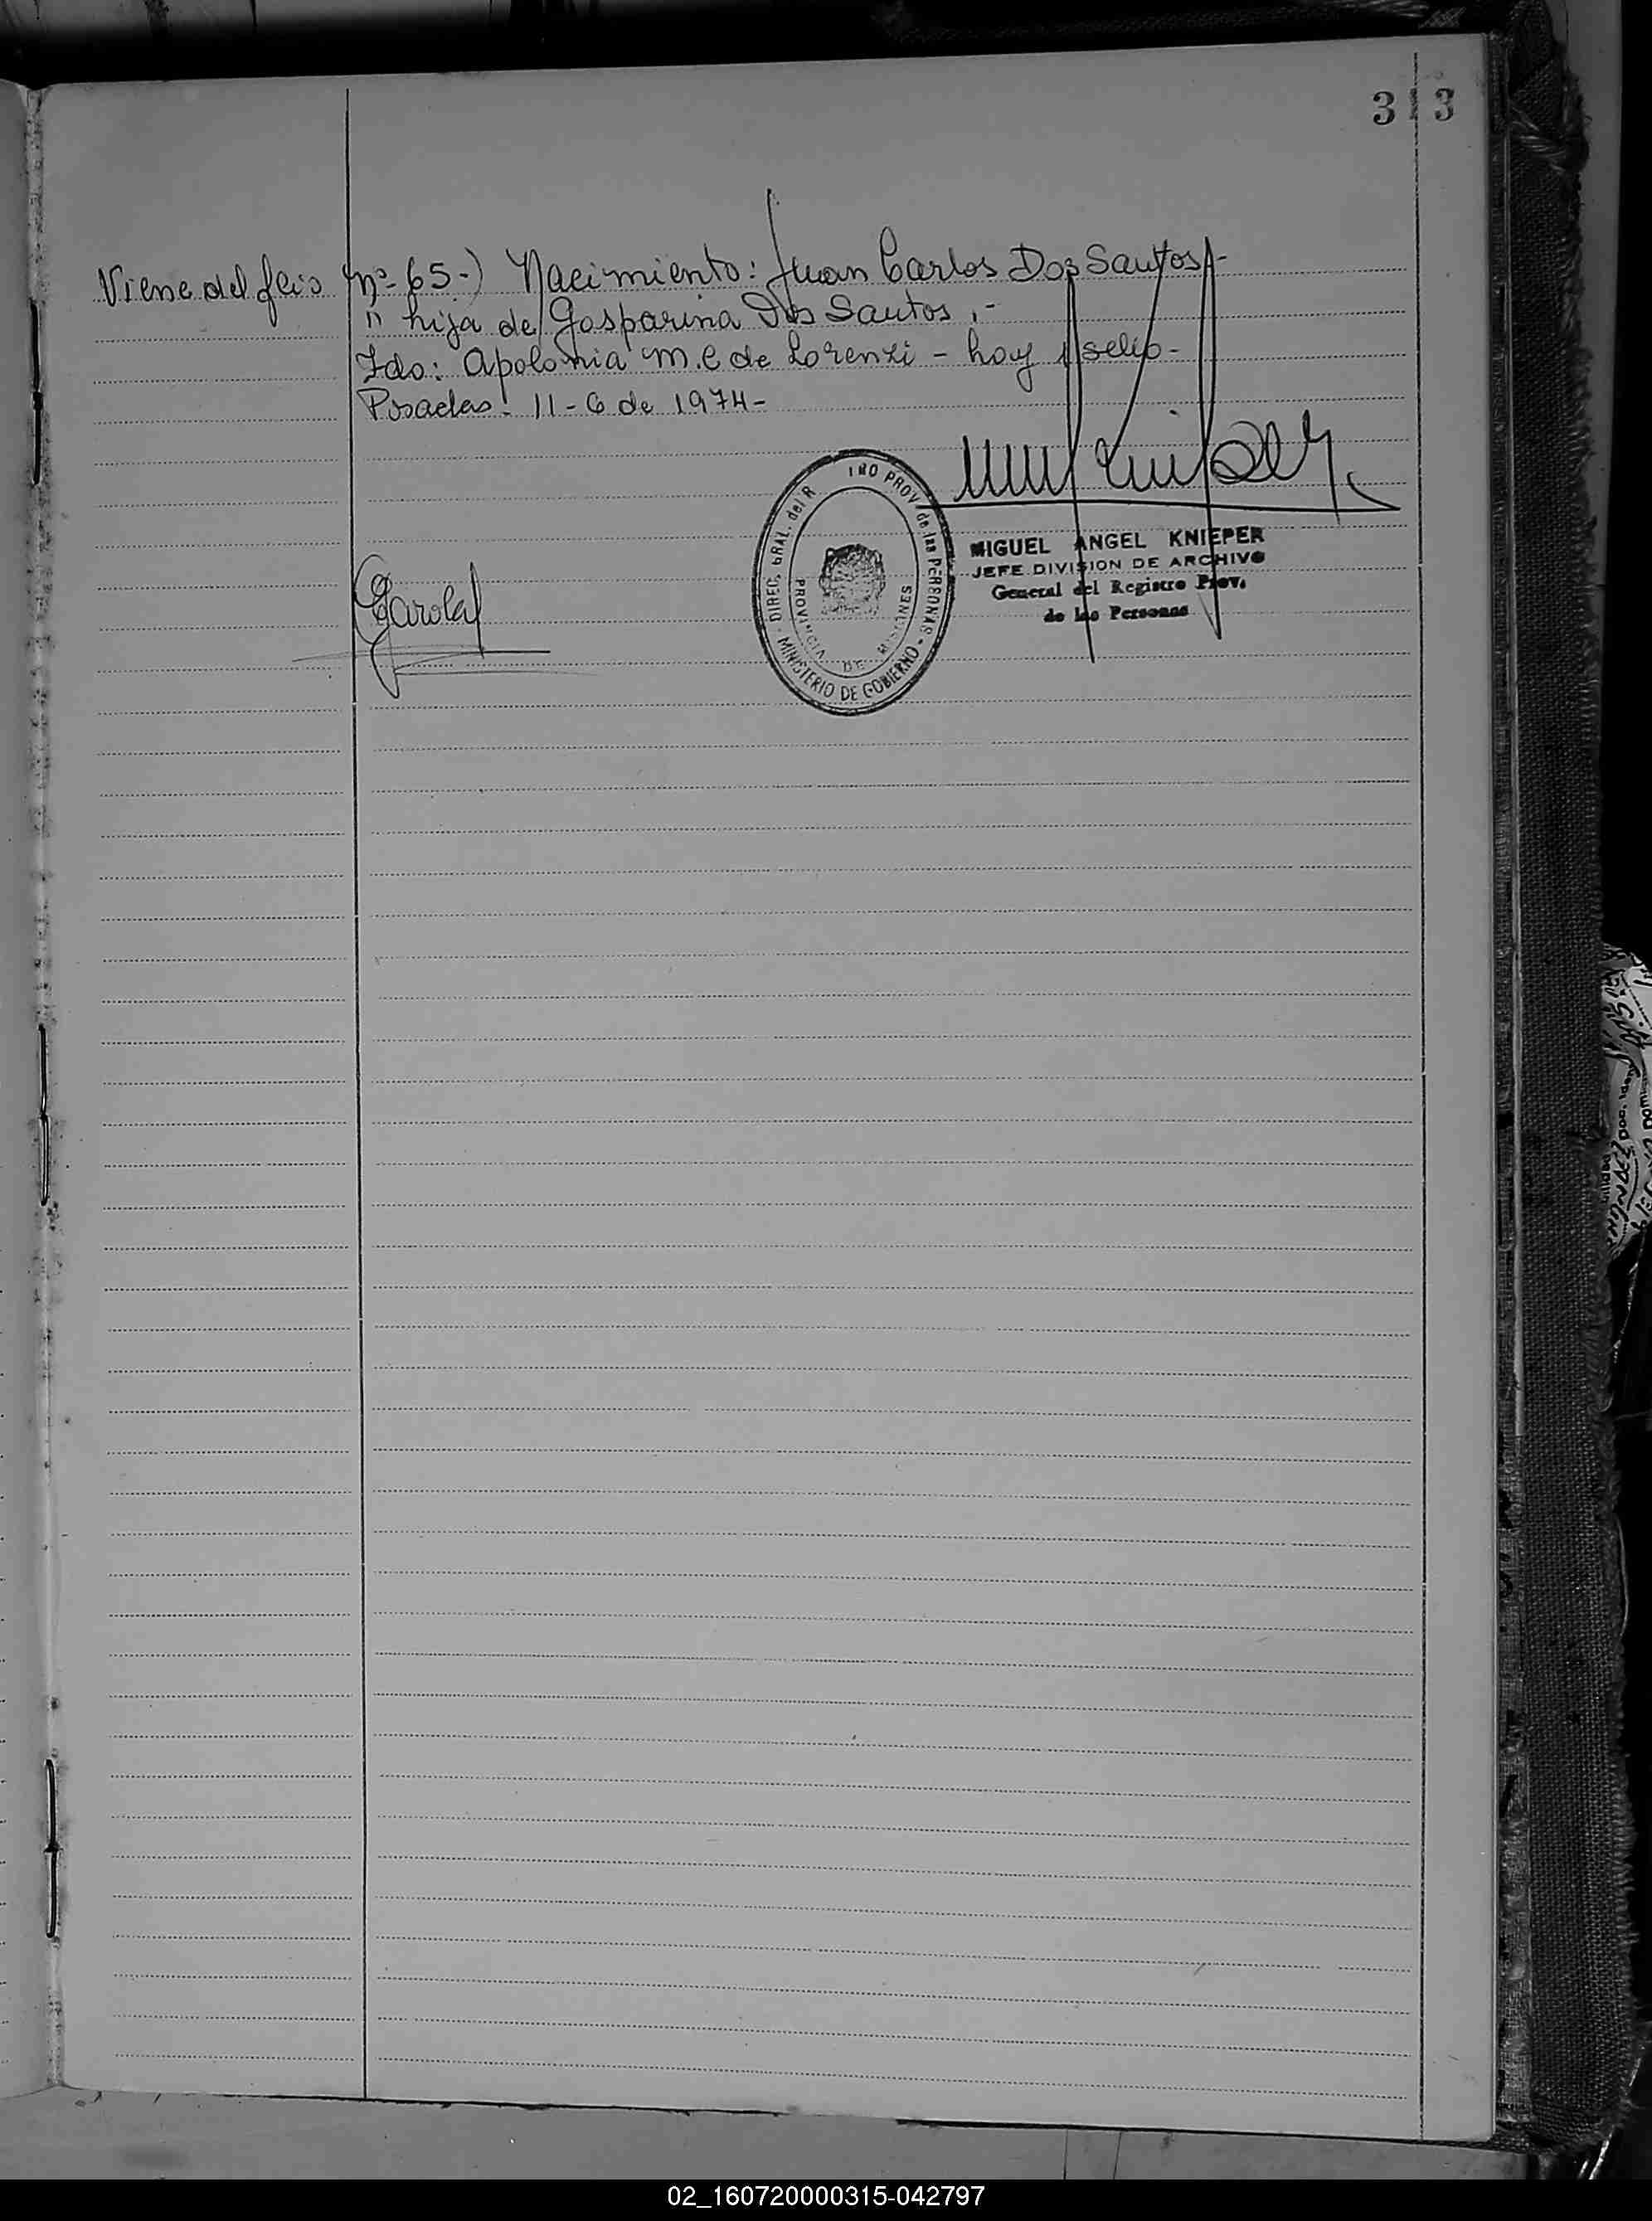 313
Viene del folio nº 65-) Nacimiento: Juan Carlos Dos Santos-
" hija de Gasparina Dos Santos.-
Fdo: Apolonia M.C de Lorenzi - hoy sello-
Posadas: 11-6 de 1974-
DIREC. GRAL. del R TRO PROV. de las PERSONAS - MINISTERIO DE GOBIERNO -
PROVINCIA DE MISIONES
MIGUEL ANGEL KNIEPER
JEFE DIVISION DE ARCHIVO
General del Registro Prov.
de las Personas
02_160720000315-042797